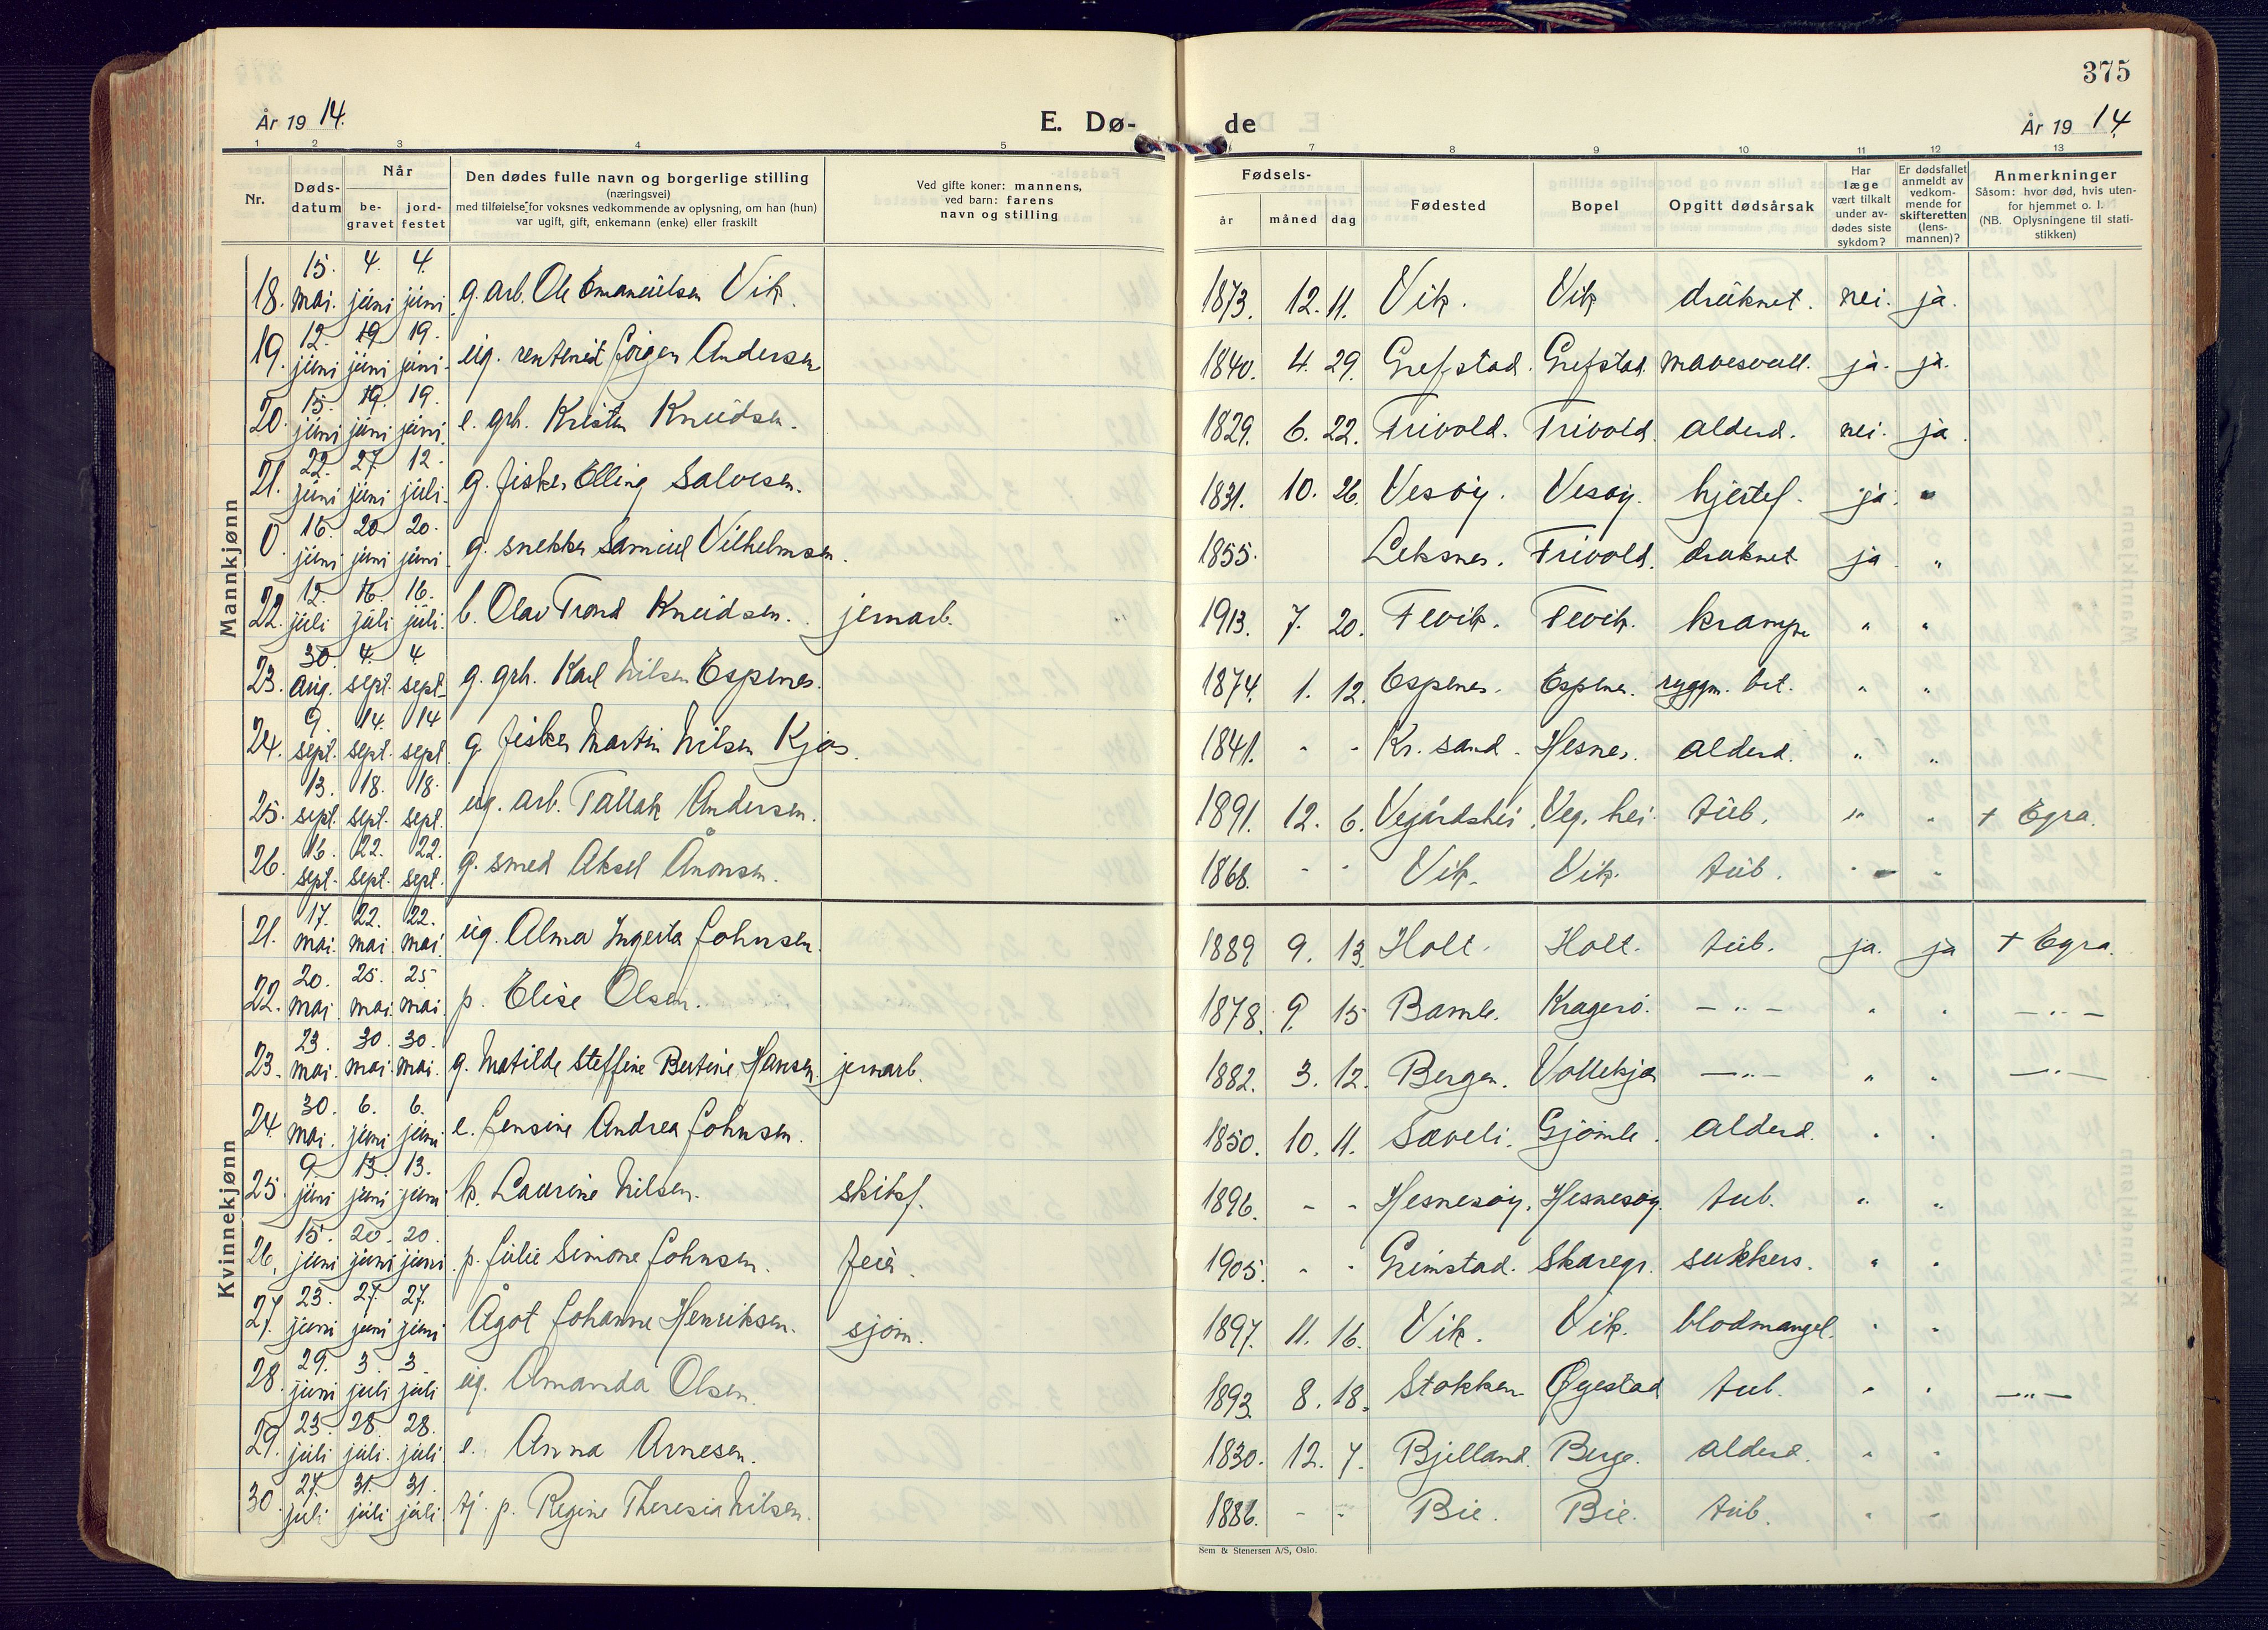 375
År 19 14.
E. Dø-
de
År 19 14
1 2 3 4 5 7 8 9 10 11 12 13
Nr.
Døds-datum
Når
be-gravet
jord-festet
Den dødes fulle navn og borgerlige stilling
(næringsvei)
med tilføielse for voksnes vedkommende av oplysning, om han (hun)
var ugift, gift, enkemann (enke) eller fraskilt
Ved gifte koner: mannens,
ved barn: farens
navn og stilling
Fødsels-
år måned dag
Fødested
Bopel
Opgitt dødsårsak
Har læge vært tilkalt under av-dødes siste sykdom?
Er dødsfallet anmeldt av vedkom-mende for skifteretten (lens-mannen)?
Anmerkninger
Såsom: hvor død, hvis uten-for hjemmet o. l.
(NB. Oplysningene til stati-stikken)
Mannkjønn
18. 15. mai. 4. juni 4. juni g. arb. Ole Emanuelsen Vik. 1873. 12. 11. Vik. Vik druknet. nei. ja.
19. 12. juni 19 juni 19. juni. ug. rentenist Jørgen Andersen 1840. 4. 29. Grefstad. Grefstad. mavesvull. ja. ja.
20. 15. juni 19. juni 19. juni. e. grb. Kristen Knudsen. 1829. 6. 22. Trivold. Trivold. alderd. nei. ja.
21. 22. juni 27. juni 12. juli. g. fisker Elling Salvesen. 1831. 10. 26. Vesøy. Vesøy. hjertef. ja. "
0. 16. juni 20 juni 20. juni. g. snekker Samuel Vilhelmsen. 1855. Leksnes. Trivold. druknet ja "
22. 12. juli 16. juli 16. juli. b. Olav Trond Knudsen. jernarb. 1913. 7. 20. Fevik. Fevik. krampe " "
23. 30. aug. 4. sept. 4. sept. g. grb. Karl Nilsen Espenes. 1874. 1. 12. Espenes. Espenes. ryggm. bet. " "
24. 9. sept. 14. sept. 14 sept. g. fisker Martin Nilsen Kjøs. 1841. - - Kr. sand. Hesnes. alderd. " "
25. 13. sept. 18. sept. 18. sept. ug. arb. Tallak Andersen. 1891. 12. 6. Vegårdshei. Veg. hei. tub. " " + Egra.
26. 16. sept. 22. sept. 22. sept. g. smed Aksel Ånonsen. 1868. - - Vik. Vik. tub. " "
Kvinnekjønn
21. 17. mai. 22. mai 22. mai. ug. Alma Ingerta Johnsen. 1889 9. 13. Holt. Holt. tub. ja. ja + Egra.
22. 20. mai 25. mai. 25. mai p. Elise Olsen. 1878. 9. 15 Bamle. Kragerø. — " — " " — " —
23. 23. mai. 30. mai. 30. mai. g. Matilde Steffine Bertine Hansen. jernarb. 1882. 3. 12. Bergen. Vollekjær — " — " " — " —
24. 30. mai. 6. juni 6. juni e. Jensine Andrea Johnsen. 1850. 10. 11. Sæveli. Gjømle. alderd. " "
25. 9. juni 13. juni 13. juni k. Laurine Nilsen. skibsf. 1896. - - Hesnesøy. Hesnesøy. tub. " "
26. 15. juni 20. juni 20. juni p. Julie Simone Johnsen. feier. 1905. - - Grimstad. Skaregr. sukkers. " "
27. 23. juni 27. juni 27. juni Ågot Johanne Henriksen. sjøm. 1897. 11. 16. Vik. Vik. blodmangel. " "
28. 29. juni 3. juli 3. juli ug. Amanda Olsen. 1893. 8. 18. Stokken Øyestad tub. " " — " —
29. 23. juli 28. juli. 28. juli e. Anna Arnesen. 1830. 12. 7. Bjelland. Berge. alderd. " "
30. 27. juli 31. juli 31. juli tj. p. Regine Theresia Nilsen. 1886. - - Bie. Bie. tub. " "
Sem & Stenersen A/S, Oslo.